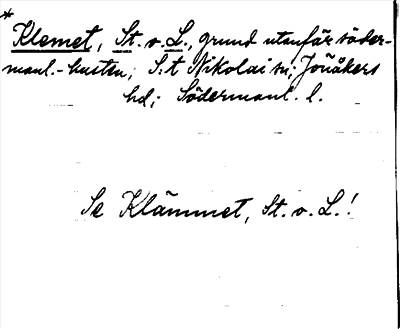 * Klemet, St. o. L., grund utanför söder-
manl.-kusten; S:t Nikolai sn; Jönåkers
hd; Södermanl. l.
Se Klämmet, St. o. L.!